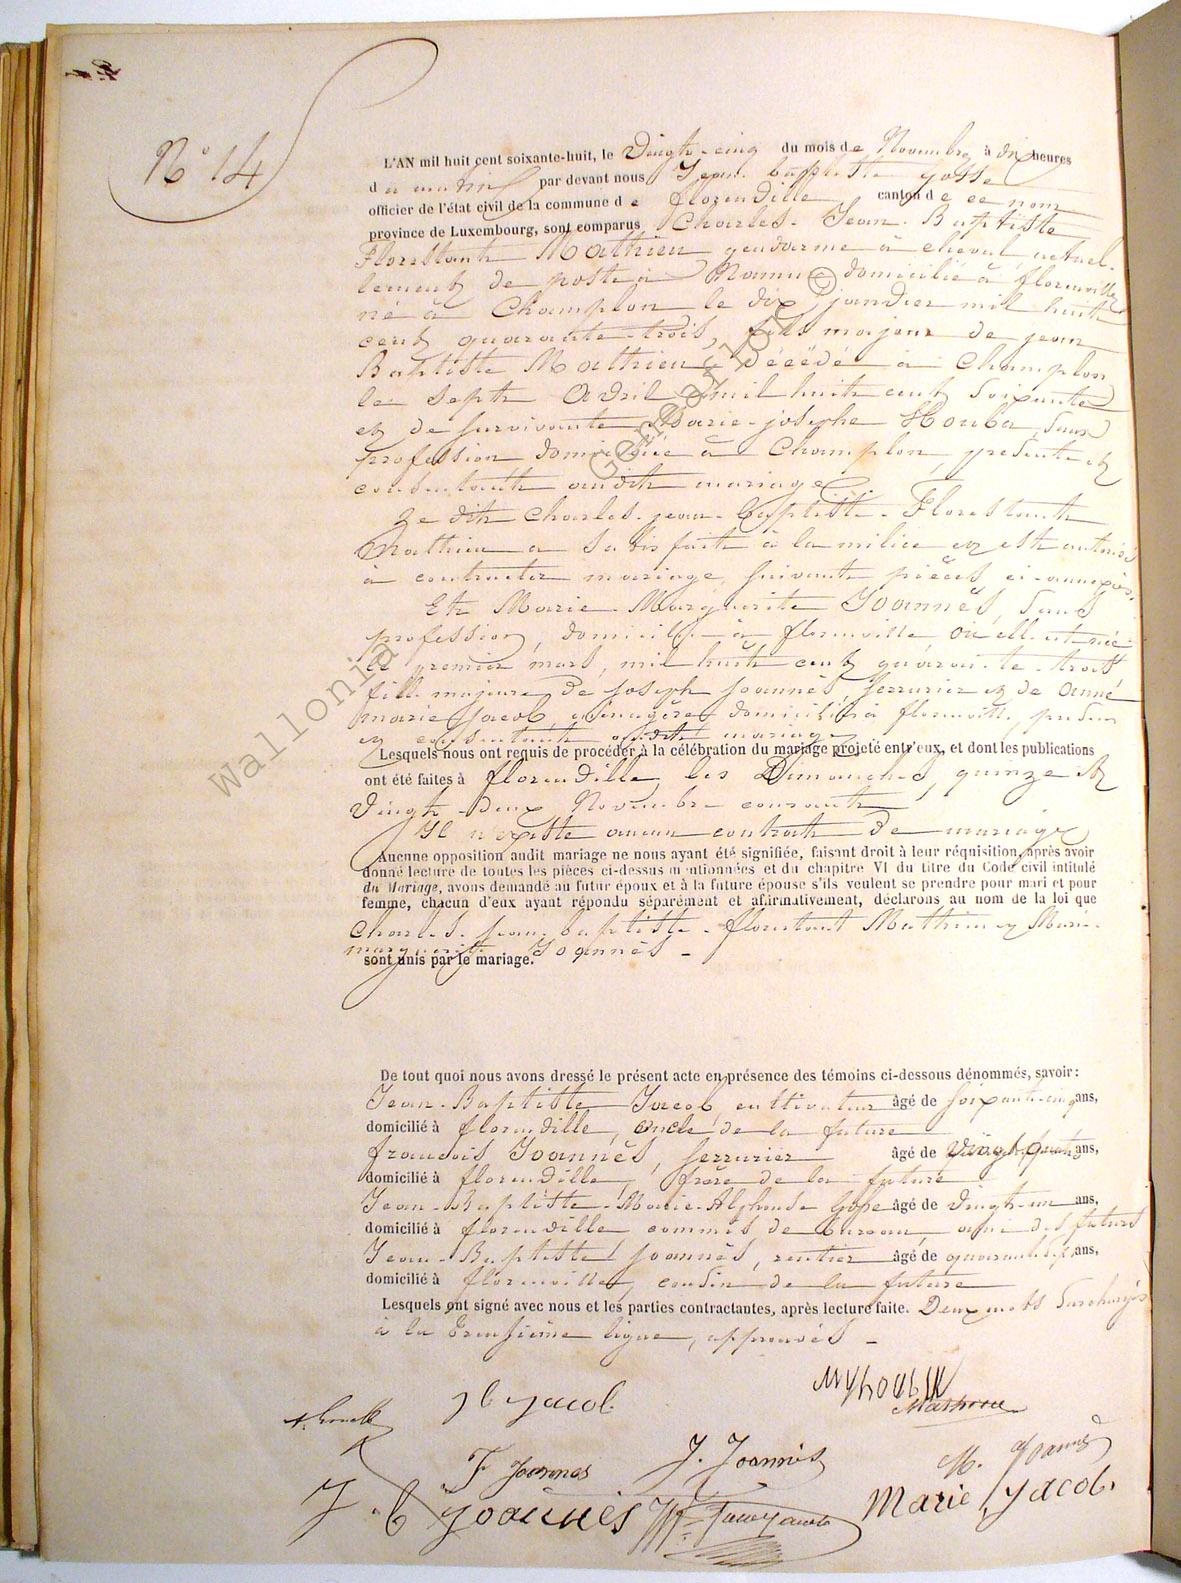 N° 14
L'AN mil huit cent soixante-huit, le vingt-cinq du mois de Novembre à dix heures
du matin par devant nous Jean baptiste
officier de l'état civil de la commune de florenville canton de ce nom
province de Luxembourg, sont comparus Charles-Jean-Baptiste
Florestant Mathieu gendarme à cheval, actuel-
lement de poste à Namur domicilié à florenville
né à Champlon le dix janvier mil huit
cent quarante-trois, fils majeur de jean
Baptiste Mathieu décédé à Champlon
le sept Avril mil huit cent soixante
et de survivante Marie-josephe Houba sans
profession domiciliée à Champlon, présente et
consentant audit mariage
Le dit Charles-jean-baptiste-Florestant
Mathieu a satisfait à la milice et est autorisé
à contracter mariage, suivant pièces ci-annexées
Et Marie-Marguerite Joannès, sans
profession, domiciliée à florenville où elle est née
le premier mars, mil huit cent quarante-trois
fille majeure de joseph joannès, serrurier et de anne
marie jacob, ménagère domiciliés à florenville, présens
et consentant audit mariage
Lesquels nous ont requis de procéder à la célébration du mariage projeté entr'eux, et dont les publications
ont été faites à florenville, les Dimanches, quinze et
vingt-deux Novembre courant
Il n'existe aucun contrat de mariage
Aucune opposition audit mariage ne nous ayant été signifiée, faisant droit à leur réquisition, après avoir
donné lecture de toutes les pièces ci-dessus mentionnées et du chapitre VI du titre du Code civil intitulé
du Mariage, avons demandé au futur époux et à la future épouse s'ils veulent se prendre pour mari et pour
femme, chacun d'eux ayant répondu séparément et affirmativement, déclarons au nom de la loi que
Charles-jean-baptiste-florestant Mathieu et Marie-
marguerite Joannès -
sont unis par le mariage.
De tout quoi nous avons dressé le présent acte en présence des témoins ci-dessous dénommés, savoir:
Jean-Baptiste Jacob, cultivateur âgé de soixante-cinq ans,
domicilié à florenville, oncle de la future
françois Joannès, serrurier âgé de vingt-quatre ans,
domicilié à florenville, frère de la future
Jean-Baptiste-Marie-Alphonse âgé de vingt-un ans,
domicilié à florenville commis de bureau, ami des futurs
Jean-Baptiste joannès, rentier âgé de quarante-sept ans,
domicilié à florenville, cousin de la future
Lesquels ont signé avec nous et les parties contractantes, après lecture faite. Deux mots surchargés
à la treusième ligne, approuvés -
jb jacob
Mathieu
F Joannes
J. Joannès
M. Joannès
J. b joannès
Marie jacob.
wallonia
Geneanloc ©